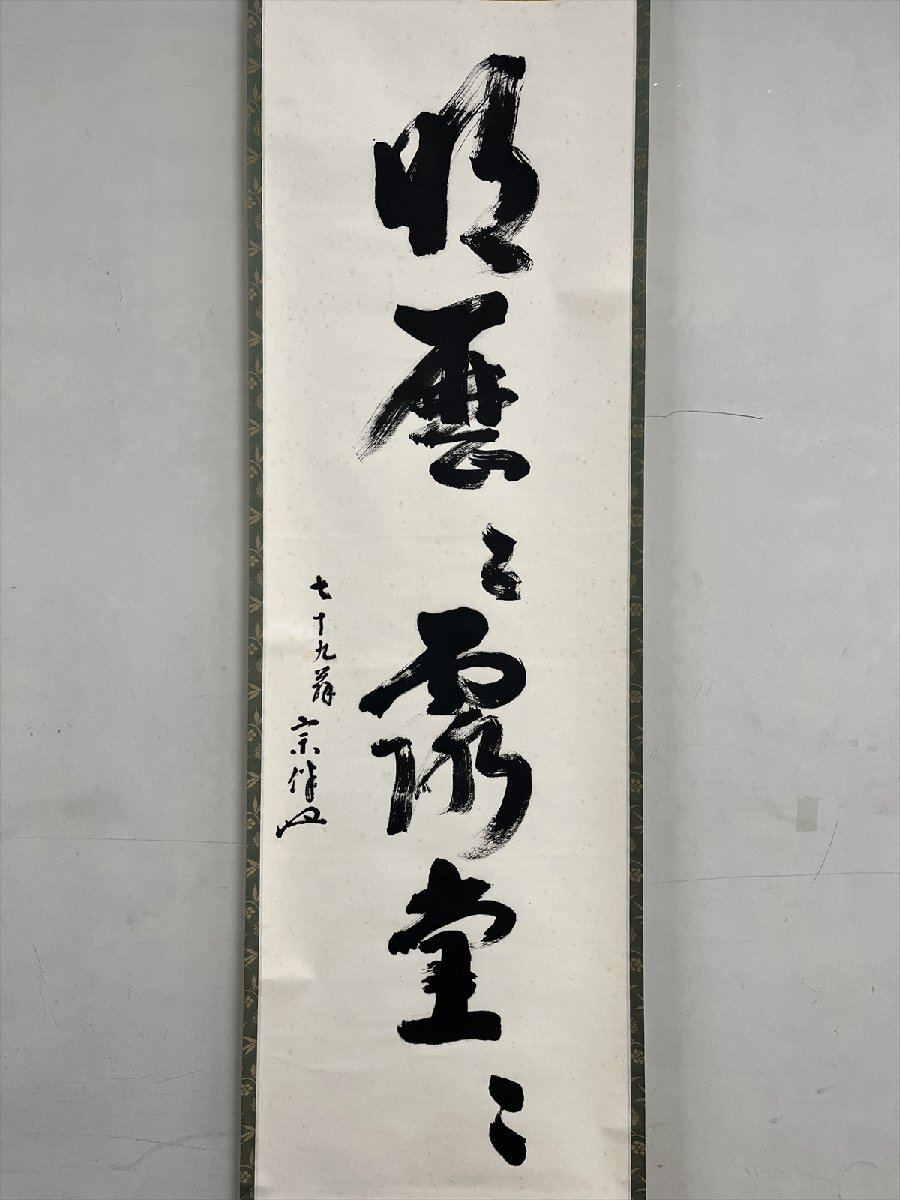 明歴々露堂々
七十九翁 宗